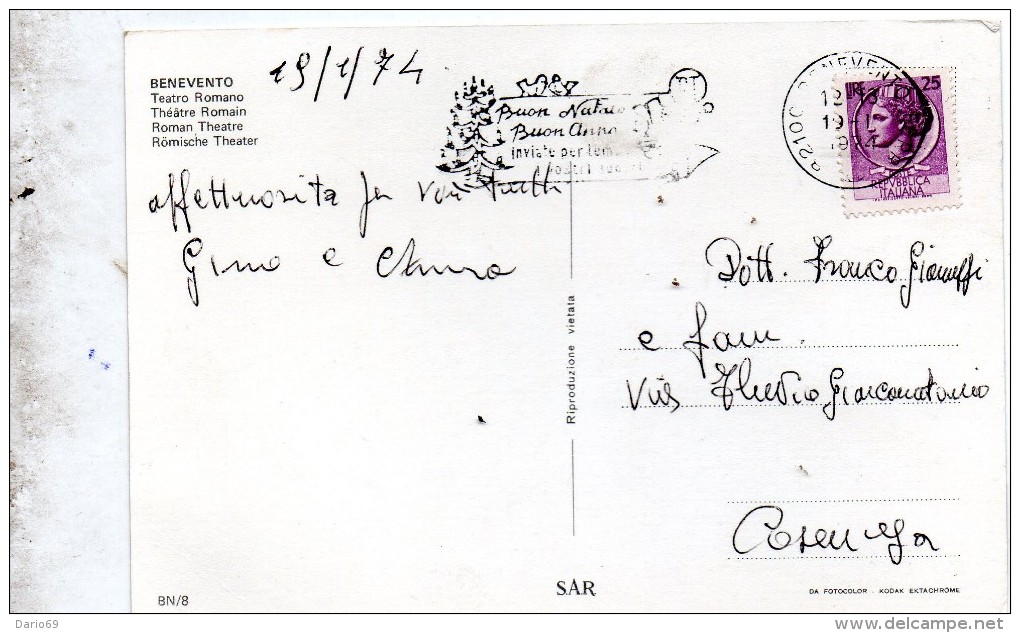 BENEVENTO
Teatro Romano
Théâtre Romain
Roman Theatre
Römische Theater
19/1/74
Buon Natale
Buon Anno
inviate per tem
i vostri
82100 BENEVENTO
19 1
1974
LIRE 25
REPVBBLICA
ITALIANA
affettuosità per voi tutti
Gino e Anna
Riproduzione vietata
Dott. Franco
e fam.
Via
Cosenza
BN/8
SAR
DA FOTOCOLOR - KODAK EKTACHROME
Dario69
delcampe.net